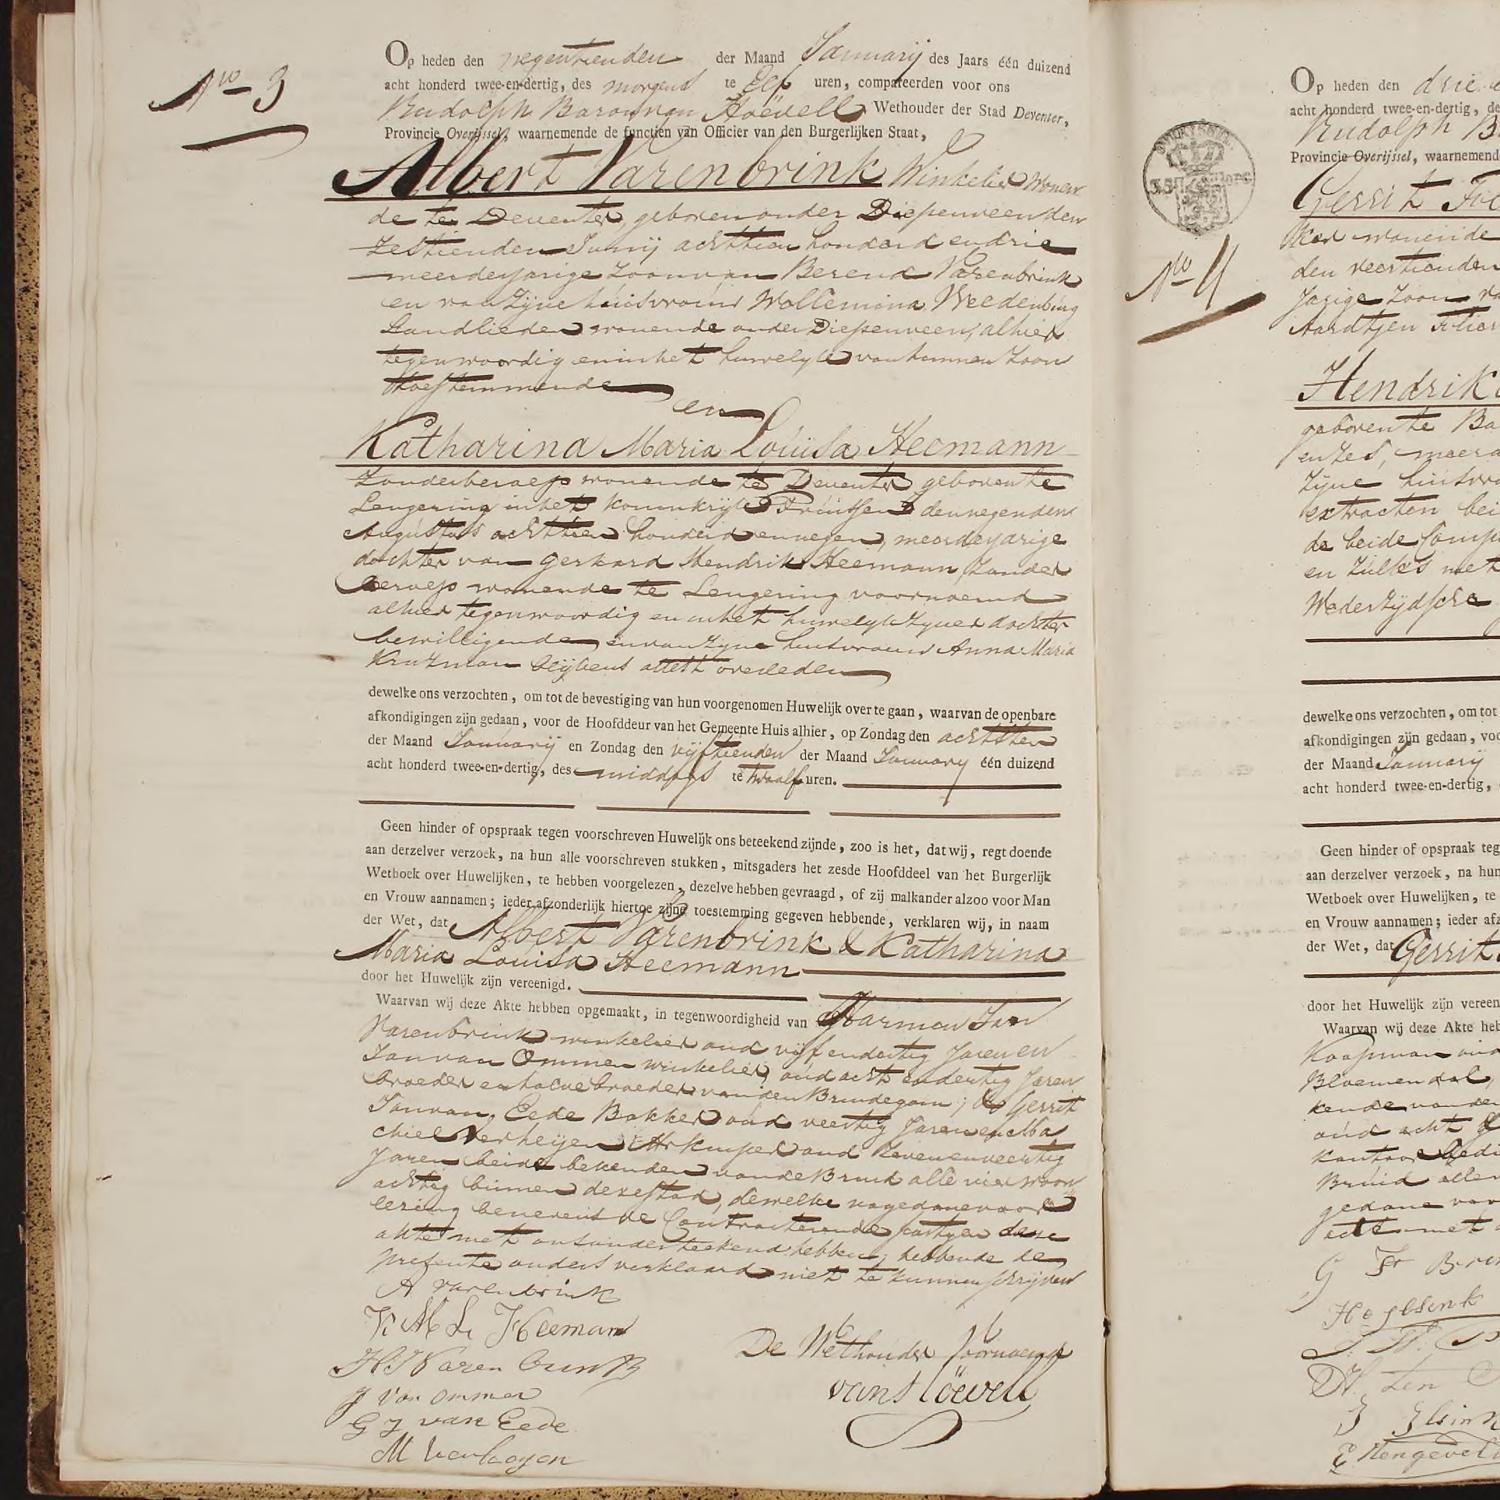 No 3
Op heden den negentienden der Maand Januarij des Jaars één duizend
acht honderd twee-en-dertig, des morgens te Elf uren, compareerden voor ons
Rudolph Baron van Hoëvell Wethouder der Stad Deventer,
Provincie Overijssel, waarnemende de functien van Officier van den Burgerlijken Staat,
Albert Varenbrink Winkelier wonen
de te Deventer geboren onder Diepenveen den
zestienden Junij achttien honderd en drie
meerderjarige zoon van Berend Varenbrink
en van zijne huisvrouw Willemina Weedenburg
Landlieden wonende onder Diepenveen, alhier
tegenwoordig en in het huwelyk van hunnen zoon
toestemmende
en
Katharina Maria Louisa Heemann
zonder beroep wonende te Deventer geboren te
Lengering in het Koninkrijk Pruissen den negenden
Augustus achttien honderd en negen, meerderjarige
dochter van Gerhard Hendrik Heemann zonder
beroep wonende te Lengering voornoemd
alhier tegenwoordig en in het huwelyk zyner dochter
bewilligende en van zyne huisvrouw Anna Maria
Kruzman blijkens attest overleden
dewelke ons verzochten, om tot de bevestiging van hun voorgenomen Huwelijk over te gaan, waarvan de openbare
afkondigingen zijn gedaan, voor de Hoofddeur van het Gemeente Huis alhier, op Zondag den achtsten
der Maand Januarij en Zondag den vijftienden der Maand Januarij één duizend
acht honderd twee-en-dertig, des middags te twaalf uren.
Geen hinder of opspraak tegen voorschreven Huwelijk ons beteekend zijnde, zoo is het, dat wij, regt doende
aan derzelver verzoek, na hun alle voorschreven stukken, mitsgaders het zesde Hoofddeel van het Burgerlijk
Wetboek over Huwelijken, te hebben voorgelezen, dezelve hebben gevraagd, of zij malkander alzoo voor Man
en Vrouw aannamen; ieder afzonderlijk hiertoe zijne toestemming gegeven hebbende, verklaren wij, in naam
der Wet, dat Albert Varenbrink & Katharina
Maria Louisa Heemann
door het Huwelijk zijn vereenigd.
Waarvan wij deze Akte hebben opgemaakt, in tegenwoordigheid van Harmen Jan
Varenbrink winkelier oud vijf en dertig Jaren en
Jan van Ommen winkelier, oud acht en dertig Jaren
broeder en halve broeder van den Bruidegom; & Gerrit
Jan van Eede Bakker oud veertig Jaren en Ma
chiel Verheijen Kuiper oud zevenenveertig
Jaren beide bekenden van de Bruid alle vier woon
achtig binnen deze stad, dewelke na gedane voor
lezing benevens de Contracterende partyen deze
akte met ons onderteekend hebben, hebbende de
presente ouders verklaard niet te kunnen schrijven
A varenbrink
K M L Heeman
H J Varenbrink
J van ommen
G J van Eede
M Verheijen
De Wethouder voornoemd
van Hoëvell
No 4
Op heden den drie
acht honderd twee-en-dertig, de
Rudolph B
Provincie Overijssel, waarnemend
Gerrit
wonende
den veertienden
jarige zoon
Hendrik
geboren te Ba
en zes, meerd
zijne huisvro
extracten bei
de beide Comp
en zulks met
Wederzijdsche
dewelke ons verzochten, om tot
afkondigingen zijn gedaan, voo
der Maand Januarij
acht honderd twee-en-dertig,
Geen hinder of opspraak teg
aan derzelver verzoek, na hun
Wetboek over Huwelijken, te
en Vrouw aannamen; ieder afz
der Wet, dat Gerrit
door het Huwelijk zijn vereen
Waarvan wij deze Akte heb
Koopman oud
Bloemendal,
kende van de
oud acht
kantoor
Bruid alle
gedane voor
acte met